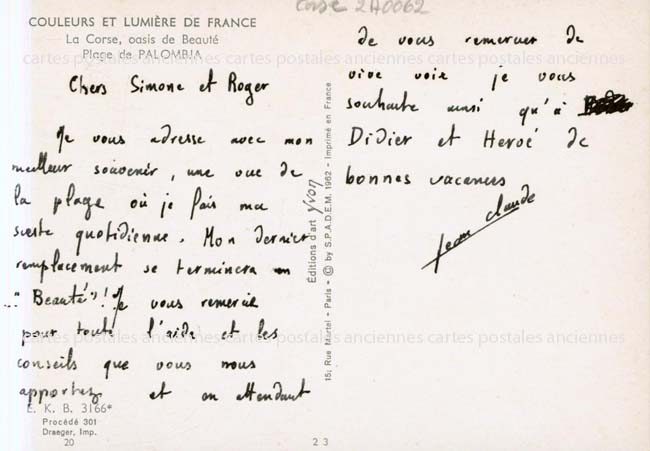 Corse 2A0062
COULEURS ET LUMIÈRE DE FRANCE
La Corse, oasis de Beauté
Plage de PALOMBIA
cartes postales anciennes cartes postales anciennes cartes postales anciennes
Chers Simone et Roger
Je vous adresse avec mon
meilleur souvenir, une vue de
la plage où je fais ma
sieste quotidienne. Mon dernier
remplacement se terminera en
..."Beauté"! Je vous remercie
pour toute l'aide et les
conseils que vous nous
apportez et en attendant
cartes postales anciennes cartes postales anciennes cartes postales anciennes
E. K. B. 3166*
Procédé 301
Draeger, Imp.
20
23
15, Rue Martel - Paris - © by S.P.A.D.E.M. 1962 - Imprimé en France
Éditions d'art Yvon
de vous remercier de
vive voie je vous
souhaite ainsi qu'à
Didier et Hervé de
bonnes vacances
Jean Claude